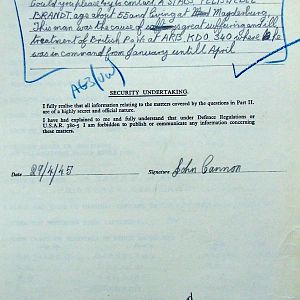 Could you please try to contact A STABS FELDWEBEL
BRANDT, age about 55 and living at Magdeburg.
This man was the cause of great suffering and ill
treatment of British P.o.W. at ARB. KDO 340, where he
was in command from January untill April
AG3(VW)
SECURITY UNDERTAKING.
I fully realise that all information relating to the matters covered by the questions in Part II.
are of a highly secret and official nature.
I have had explained to me and fully understand that under Defence Regulations or
U.S.A.R. 380-5 I am forbidden to publish or communicate any information concerning
these matters.
Date 29/4/45 Signature John Cannon